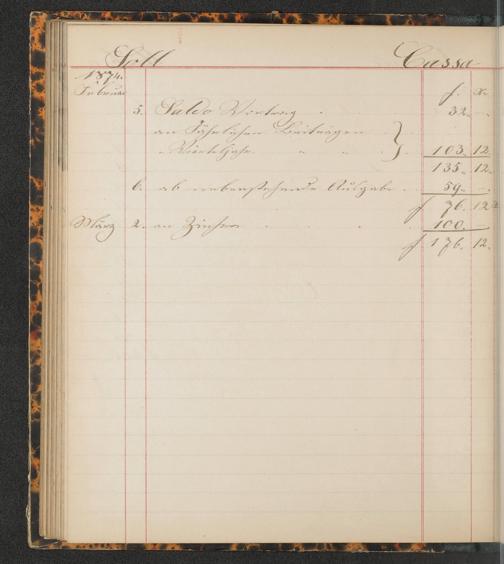 Soll Cassa
1874.
Februar f. x.
5. Saldo Vortrag 32.
an Jährlichen Beiträgen
" Vierteljahr. " " 103. 12.
135. 12.
6. ab nebenstehende Ausgabe 59.
f 76. 12
März 2. an Zinsen 100.
f 176. 12.